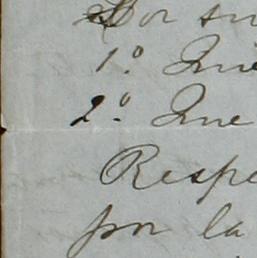 Por su
1º. Que
2º. Que
Respe
por la